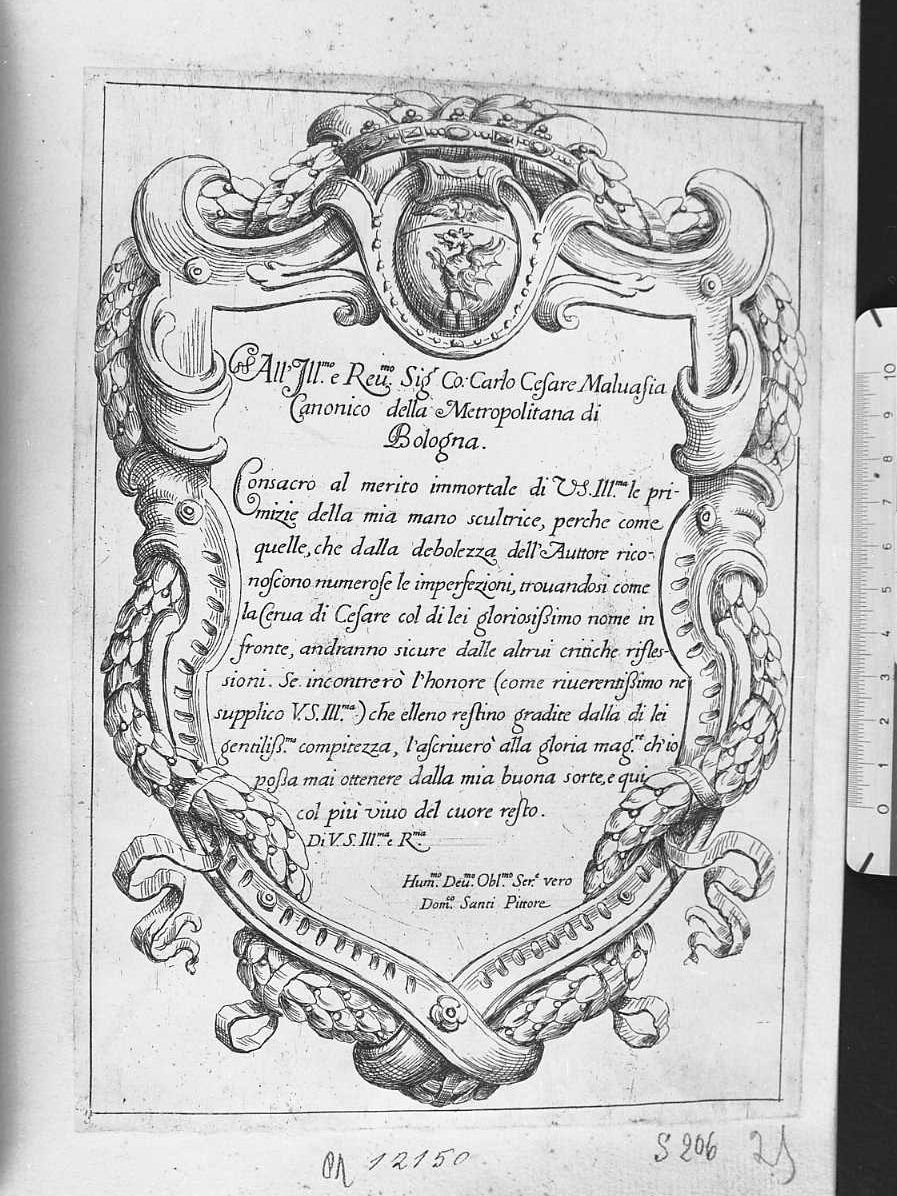 All' Ill.mo e Reu.mo Sig.r Co: Carlo Cesare Maluasia
Canonico della Metropolitana di
Bologna.
Consacro al merito immortale di VS. Ill.ma le pri-
mizie della mia mano scultrice, perche come
quelle, che dalla debolezza dell'Auttore rico-
noſcono numeroſe le imperfezioni, trouandosi come
la Cerua di Ceſare col di lei glorioſiſsimo nome in
fronte, andranno sicure dalle altrui critiche rifles-
sioni. Se incontrerò l'honore (come riuerentiſsimo ne
supplico V.S. Ill.ma) che elleno reſtino gradite dalla di lei
gentiliſs.ma compitezza, l'aſcriuerò alla gloria mag.re ch'io
poſsa mai ottenere dalla mia buona sorte, e qui
col più viuo del cuore reſto.
Di V. S. Ill.ma e R.ma
Hum.mo Deu.mo Obl.mo Ser.e vero
Dom.co Santi Pittore
10
9
8
7
6
5
4
3
2
1
0
12150
S 206